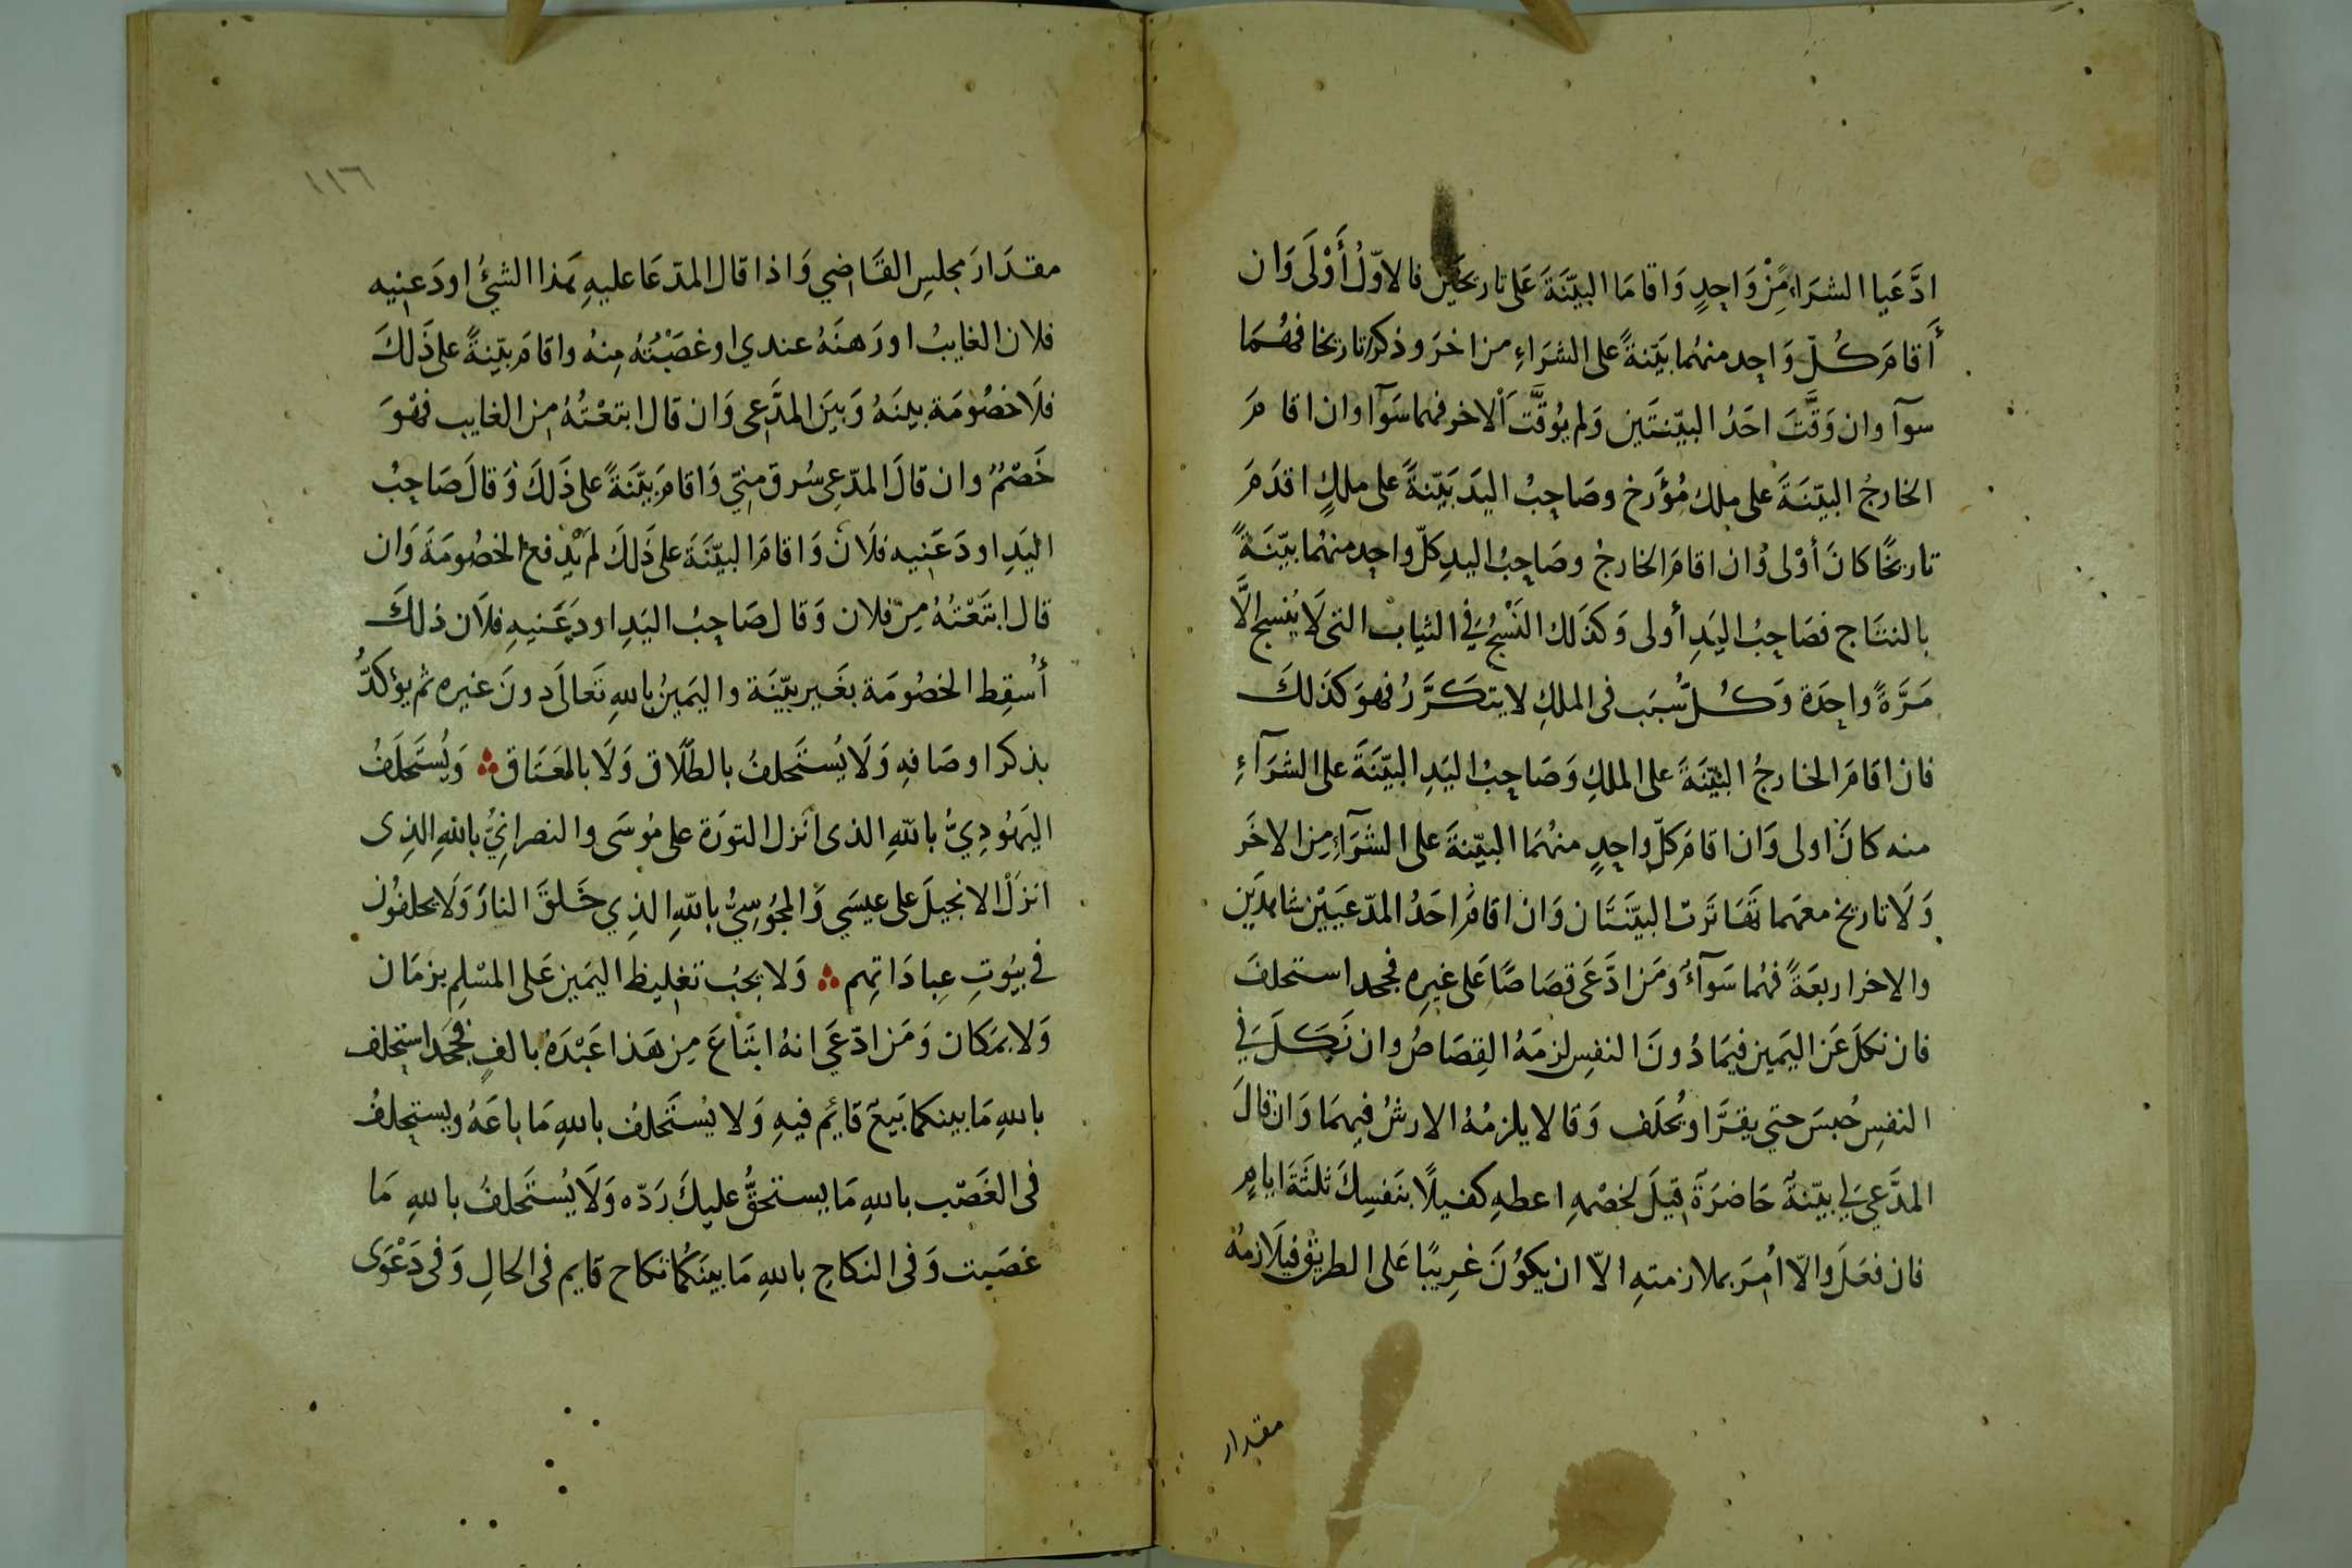 ادَّعَيا الشرَاءَ مِنْ وَاحِدٍ وَاقامَا البيّنَةَ عَلى تاريخَين فالاوّلُ أَوْلَى وَان
أَقامَ كُلّ وَاحِد منهُما بيّنةً على الشرَاءِ من اخرَ وذكرا تاريخا فهُمَا
سوآ وان وَقَّتَ احَدُ البيّنتَين وَلم يُوَقَّت الاخر فهما سَوآ وان اقامَ
الخارجُ البيّنَةَ على ملك مُؤرَخ وصَاحِبُ اليَد بَيّنةً على ملكٍ اقدَمَ
تاريخًا كانَ أوْلى وَان اقامَ الخارجُ وصَاحِبُ اليدِ كلّ واحِد منهُما بيّنَةً
بالنتاج فصَاحِبُ اليَدِ أولى وَكذلك النَسْجُ في الثياب التي لَا يُنسج الَّا
مَرَّةً واحِدَة وَكُلّ سَبَب فى الملكِ لا يتكَرَّرُ فهوَ كذلكَ
فان اقامَ الخارجُ البيّنَةَ على الملكِ وَصَاحِبُ اليَدِ البيّنَةَ على الشرَآءِ
منه كانَ اولى وَان اقامَ كلّ واحِدٍ منهُمَا البيّنةَ على الشرَآءِ مِن الاخَر
وَلَا تاريخ معهَما تَهَاتَرت البيّنَتَان وَان اقامَ احَدُ المدّعيَيْن شاهدَين
والاخر اربعَةً فهُما سَوآءُ وَمَن ادَّعَى قصَاصًا عَلى غيرِه فجحد استحلفَ
فان نكلَ عَن اليَمين فيمَا دُونَ النفسِ لزمَهُ القِصَاصُ وان نَكَلَ في
النفسِ حُبسَ حتي يقرَّ او يُحلَف وَقالا يلزمُهُ الارشُ فيهمَا وَان قالَ
المدَّعيَ لي بيّنةُ حَاضرَةُ قيلَ لخصْمهِ اعطهِ كفيلًا بنَفسِكَ ثلثَةَ ايامٍ
فان فعَلَ والّا اُمِرَ بملازمتهِ الّا ان يكوُنَ غرِيبًا عَلى الطريق فيلَازمُهُ
مقدار
١١٦
مقدَارَ مجلسِ القَاضي وَاذا قال المدّعَا عليهِ هَذا الشيُ اودَعنِيه
فلان الغايبُ اورَهنَهُ عندي او غصَبْتُهُ مِنهُ واقامَ بيّنةً على ذَلكَ
فلَا خصُومَة بينَهُ وَبينَ المدَّعى وَان قال ابتعْتُهُ مِن الغايب فهْوَ
خَصْمُ وان قالَ المدّعي سُرق منّي وَاقامَ بيّنَةً على ذَلكَ وَقالَ صَاحِبُ
اليَدِ اودَعَنِيه فلَانُ وَاقامَ البيّنَةَ على ذَلكَ لم يندفع الخصُومَةَ وَان
قال ابتَعْتُهُ مِن فلان وَقال صَاحِبُ اليَدِ اودَعَنيهِ فلَان ذلكَ
أسقِط الخصُومَة بغَير بيّنَة واليَمينُ باللهِ تَعالَى دونَ غيره ثم يؤكدُّ
بذكر اوصَافهِ وَلَا يُستَحلفُ بالطلَاق وَلَا بالعَتَاق ؞ وَيُستَحلَفُ
اليَهُودِيُّ باللهِ الذى انَزل التورَة على مُوسَى والنصرانيُّ باللهِ الذِى
انزَلَ الانجيلَ على عيسَي وَالمجُوسيُّ باللهِ الذِي خَلقَ النارَ وَلَا يحلفُون
في بيُوتِ عِبادَاتِهم ؞ وَلا يجبُ تغليظ اليَمين عَلى المسْلِم بزمَان
وَلا بمَكان وَمَن ادّعَي انهُ ابتَاعَ مِن هَذا عَبْدَهُ بالفٍ فجَحَد استحلف
باللهِ مَا بينكما بَيعُ قايُم فيهِ وَلا يُستَحلفُ باللهِ مَا باعَهُ ويستحلفُ
فى الغَصْب باللهِ مَا يستحقُّ عليكَ رَدّه وَلَا يُستَحلفُ باللهِ مَا
غصَبت وَفى النكاحِ باللهِ مَا بينَكُما نكاح قايم فى الحالِ وَفى دَعْوَى